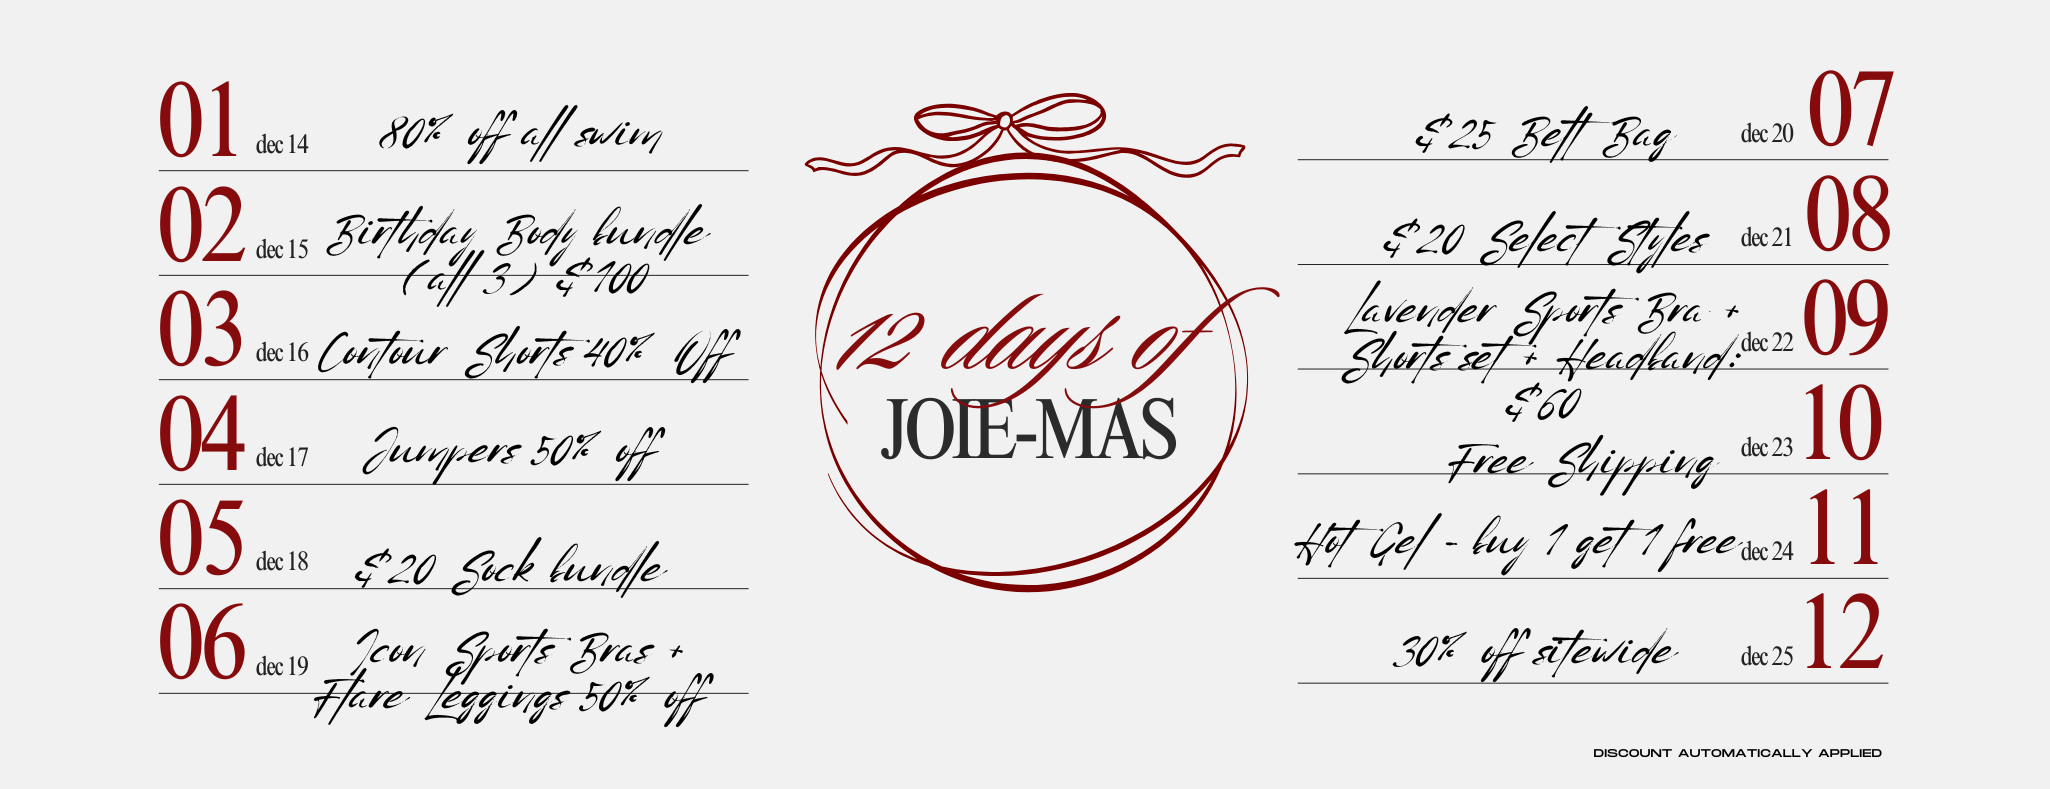 01 dec 14 80% off all swim
02 dec 15 Birthday Body bundle
(all 3) $100
03 dec 16 Contour Shorts 40% Off
04 dec 17 Jumpers 50% off
05 dec 18 $20 Sock bundle
06 dec 19 Icon Sports Bras +
Flare Leggings 50% off
12 days of
JOIE-MAS
$25 Belt Bag dec 20 07
$20 Select Styles dec 21 08
Lavender Sports Bra +
Shorts set + Headband: dec 22 09
$60
Free Shipping dec 23 10
Hot Gel - buy 1 get 1 free dec 24 11
30% off sitewide dec 25 12
DISCOUNT AUTOMATICALLY APPLIED